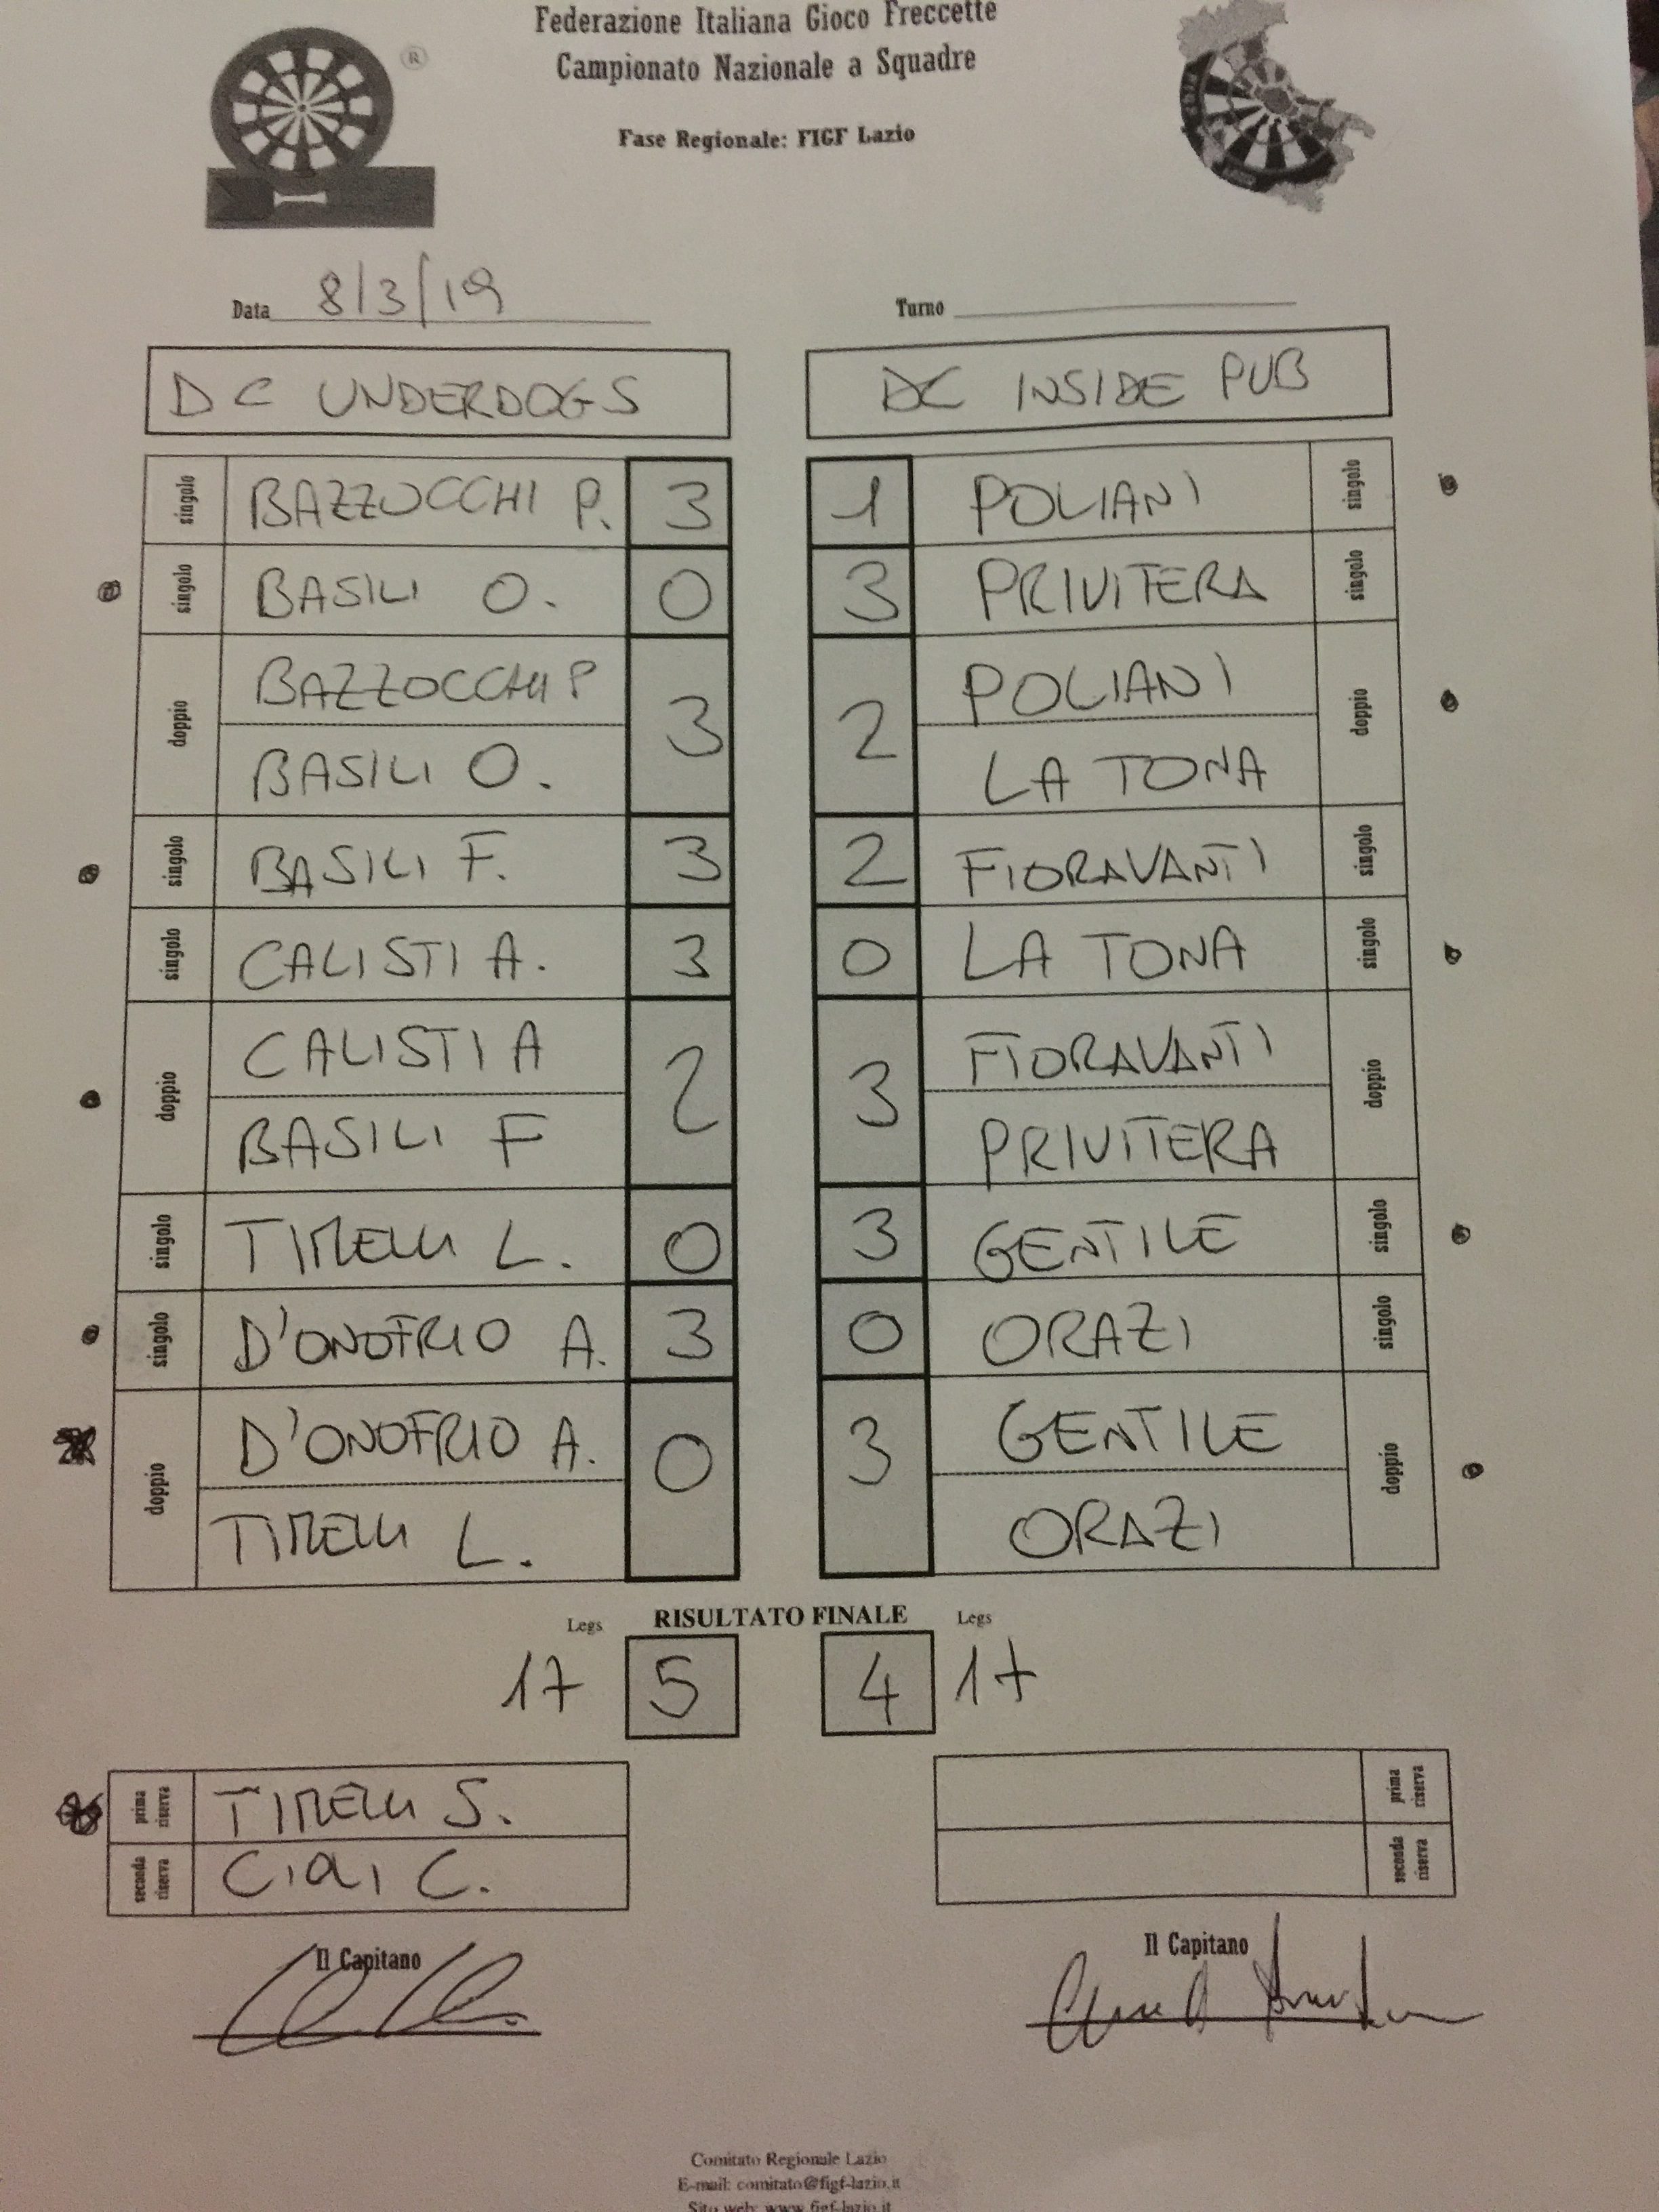 Federazione Italiana Gioco Freccette
Campionato Nazionale a Squadre
Fase Regionale: FIGF Lazio
®
Data 8/3/19 Turno
DC UNDERDOGS DC INSIDE PUB
singolo BAZZOCCHI P. 3 1 POLIANI singolo
singolo BASILI O. 0 3 PRIVITERA singolo
doppio BAZZOCCHI P 3 2 POLIANI doppio
BASILI O. LA TONA
singolo BASILI F. 3 2 FIORAVANTI singolo
singolo CALISTI A. 3 0 LA TONA singolo
doppio CALISTI A 2 3 FIORAVANTI doppio
BASILI F PRIVITERA
singolo TIRELLI L. 0 3 GENTILE singolo
singolo D'ONOFRIO A. 3 0 ORAZI singolo
doppio D'ONOFRIO A. 0 3 GENTILE doppio
TIRELLI L. ORAZI
Legs RISULTATO FINALE Legs
17 5 4 17
prima riserva TIRELLI S. prima riserva
seconda riserva C. seconda riserva
Il Capitano Il Capitano
Comitato Regionale Lazio
E-mail: comitato@figf-lazio.it
Sito web: www.figf-lazio.it